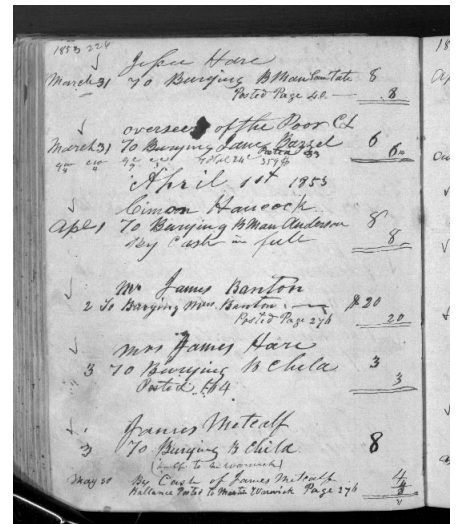 1853 224
Jesse Hare
March 31 To Burying B Man Tate 8
Posted Page 40 8
overseer of the Poor
March 31 To Burying Jane Bazzel 6
6
April 1st 1853
Cimon Hancock
Apl 1 To Burying B Man Anderson 8
By Cash in full 8
Mr James Banton
2 To Burying Mrs Banton $20
Posted Page 276 20
Mrs James Hare
3 To Burying B Child 3
Posted 3
James Metcalf
3 To Burying B Child 8
(half to be Warwick)
May 30 By Cash of James Metcalf 4
Ballance Posted to Warwick Page 276 4